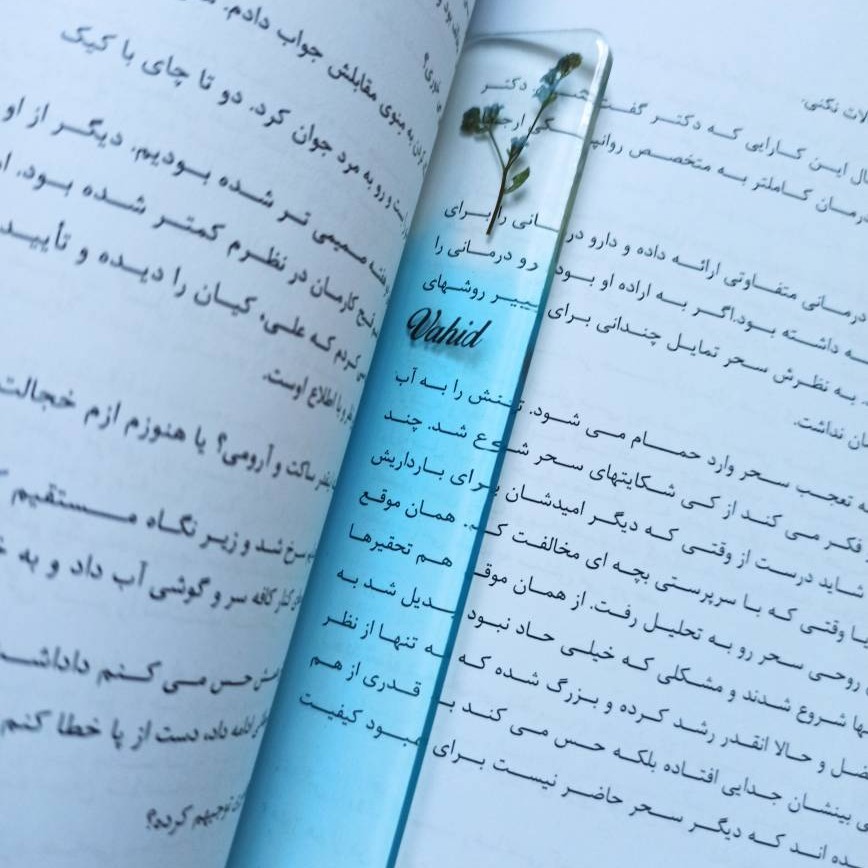 جواب دادم.
به منوی مقابلش
خوری؟
است و رو به مرد جوان کرد. دو تا چای با کیک
هفته صمیمی تر شده بودیم. دیگر از او
کارمان در نظرم کمتر شده بود.
کردم که علی، کیان را دیده و تأیید
با اطلاع اوست.
ساکت و آرومی؟ یا هنوزم ازم خجالت
سرخ شد و زیر نگاه مستقیم
کنار کافه سر و گوشی آب داد و به
حس می کنم داداشت
ادامه داد، دست از پا خطا کنم
توجیهم کرده؟
نکنی.
این کارایی که دکتر گفت دکتر
کاملتر به متخصص
درمانی متفاوتی ارائه داده و دارو درمانی را برای
داشته بود.اگر به اراده او بود رو درمانی را
به نظرش سحر تمایل چندانی برای تغییر روشهای
نداشت.
Vahid
تعجب سحر وارد حمام می شود. تنش را به آب
فکر می کند از کی شکایتهای سحر شروع شد. چند
شاید درست از وقتی که دیگر امیدشان برای بارداریش
یا وقتی که با سرپرستی بچه ای مخالفت کرد. همان موقع
روحی سحر رو به تحلیل رفت. از همان موقع هم تحقیرها
شروع شدند و مشکلی که خیلی حاد نبود تبدیل شد به
و حالا انقدر رشد کرده و بزرگ شده که نه تنها از نظر
بینشان جدایی افتاده بلکه حس می کند به قدری از هم
اند که دیگر سحر حاضر نیست برای بهبود کیفیت